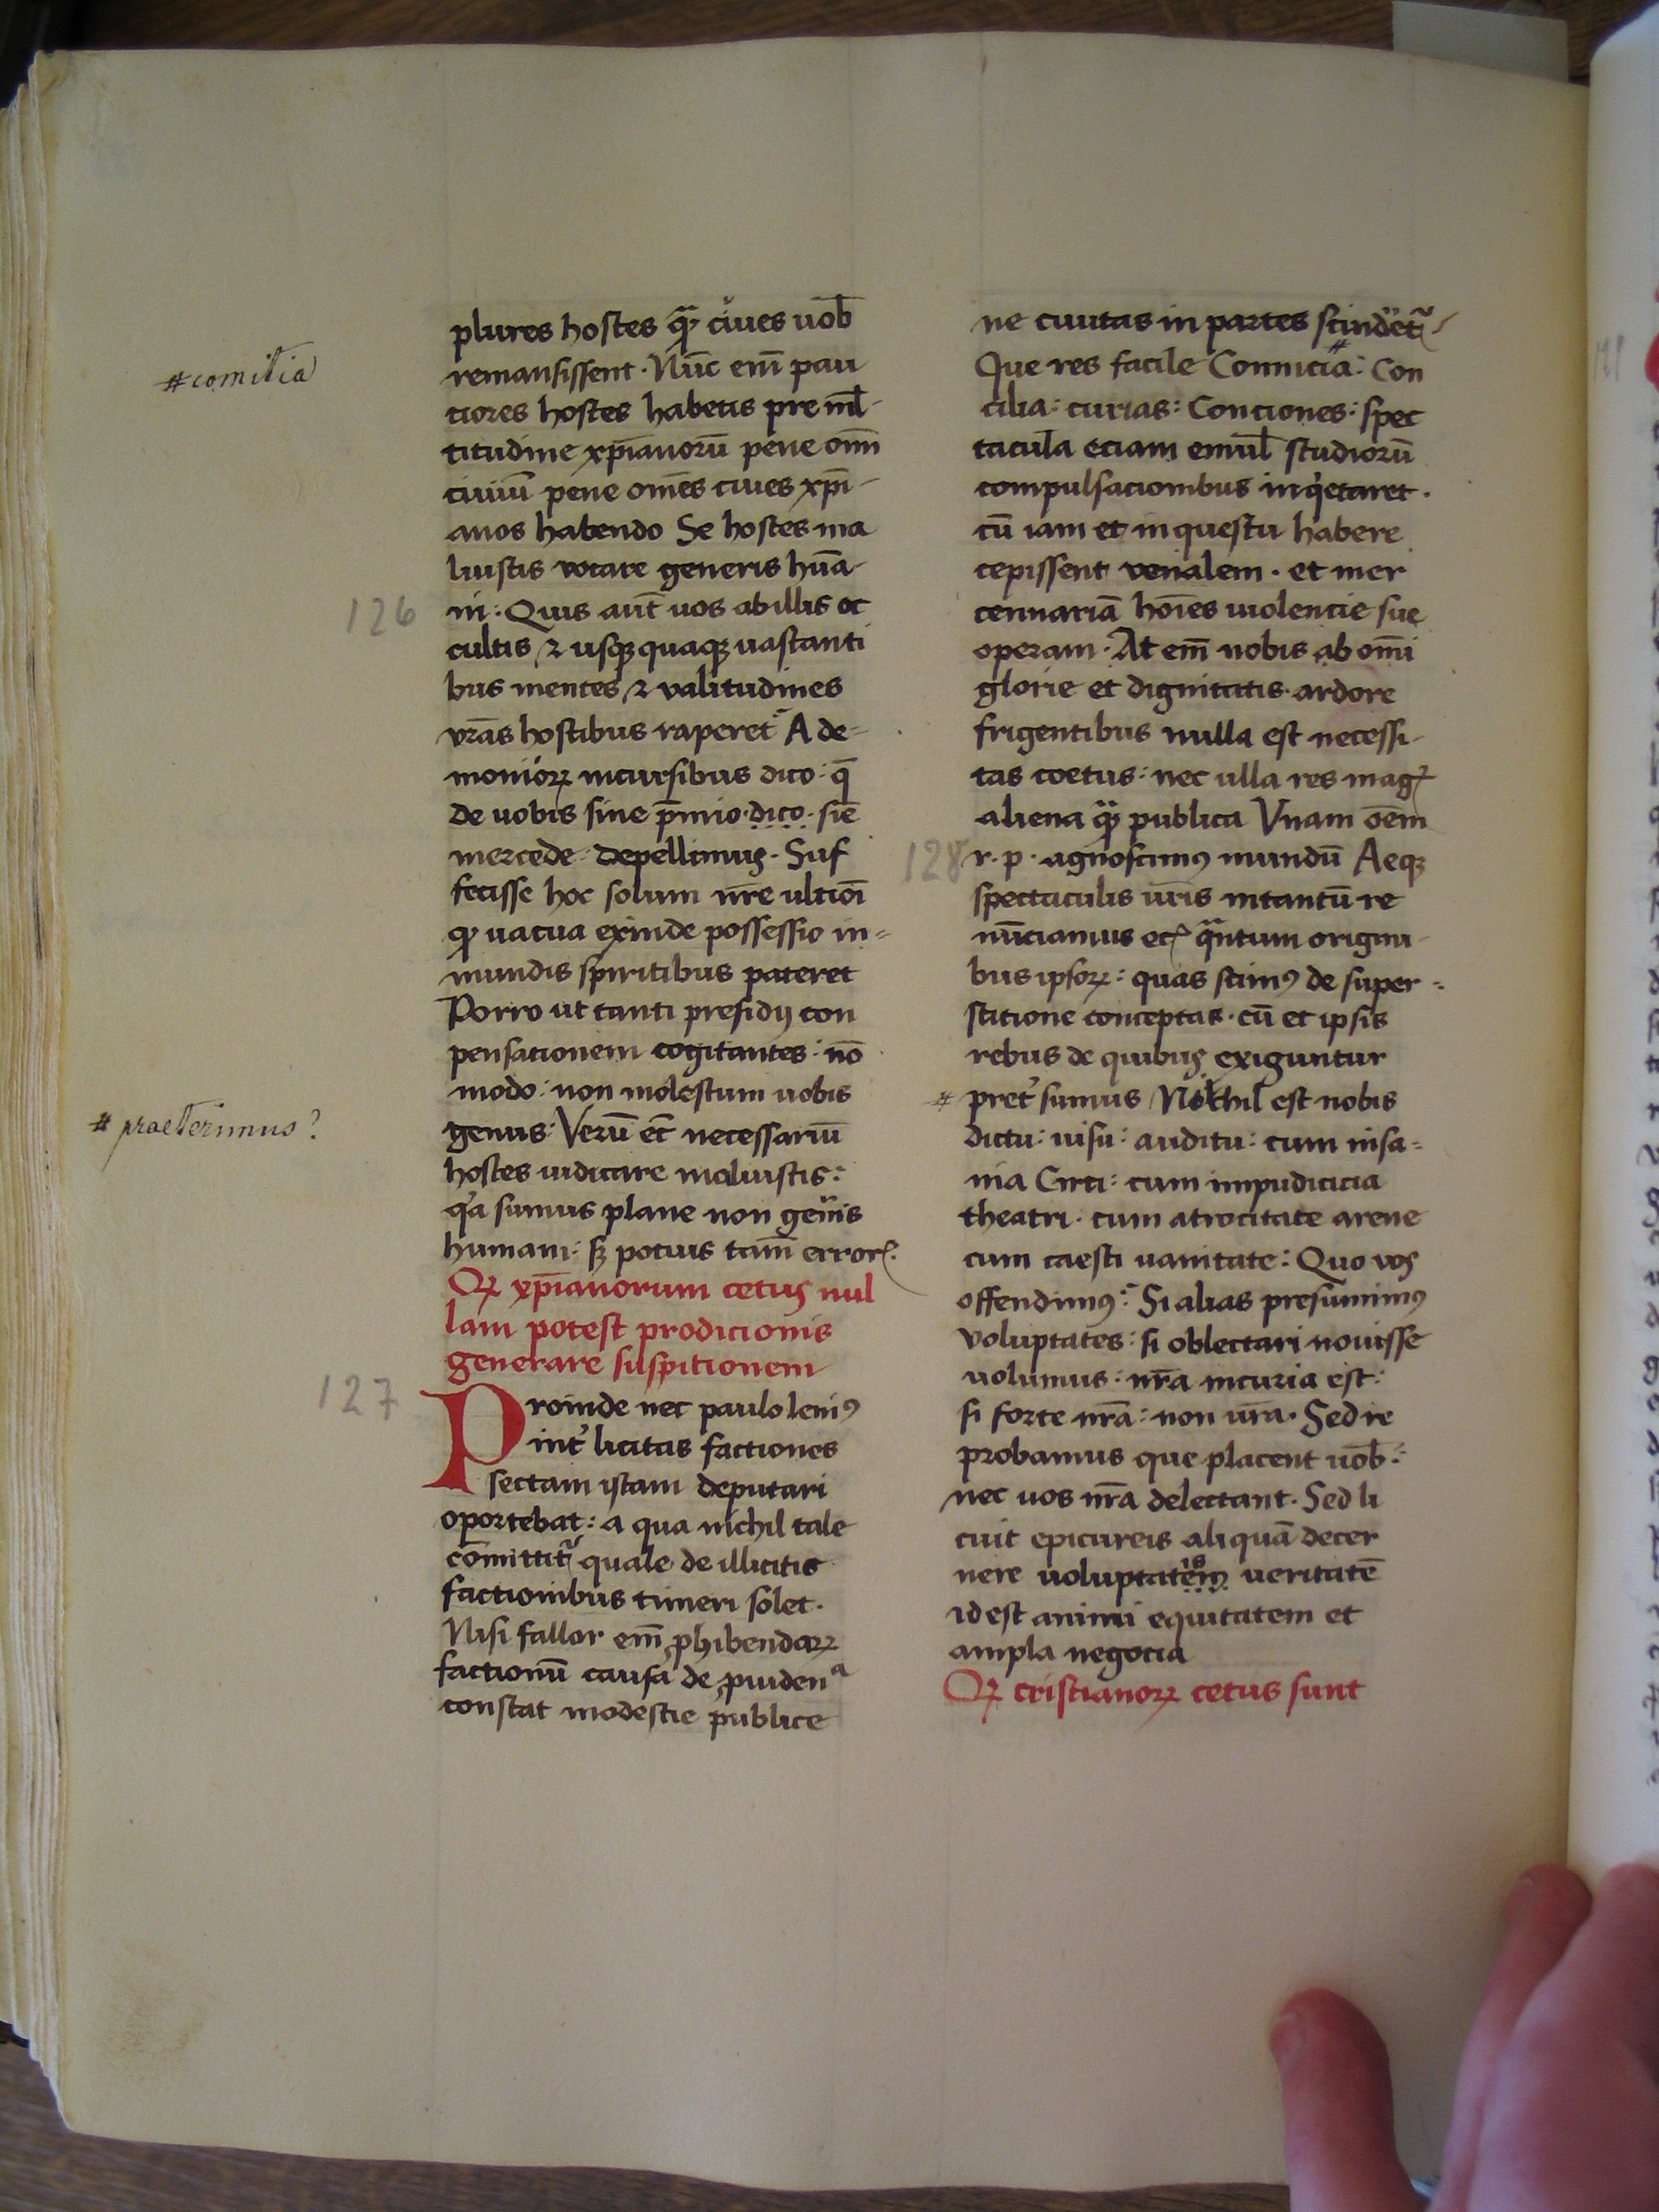 #comitia
plures hostes qꝫ ciues uob̄
remansissent. Nūc em̄ pau
ciores hostes habetis pre ml̄-
titudine xp̄ianorū pene om̄
ciuiū pene om̄es ciues xp̄i-
anos habendo Se hostes ma
luistis vocare generis hūa-
126
ni: Quis aūt uos ab illis oc
cultis ⁊ usqꝫ quaqꝫ uastanti
bus mentes ⁊ valitudines
vr̄as hostibus raperet A de-
monioꝝ incursibus dico: q̄
de uobis sine p̄mio. dico. siē
mercede depellimus. Suf
fecisse hoc solum nr̄e ultioi
qꝫ uacua exinde possessio in-
mundis spiritibus pateret
Porro ut tanti presidij con
pensationem cogitantes: nō
modo: non molestum uobis
#praeterimus?
genus: Verū ec̄ necessariū
hostes iudicare maluistis:
qa sumus plane non gen̄is
humani: sꝫ potius tam̄ error.
Qꝫ xp̄ianorum cetus nul
lam potest prodicionis
generare suspitionem
127
Proinde nec paulo leniꝰ
int' licitas factiones
sectam istam deputari
oportebat: a qua nichil tale
cōmittit᷑ quale de illicitis
factionibus timeri solet.
Nisi fallor em̄ ꝓhibendaꝝ
factionū causa de ꝓuidenᵃ
constat modestie publice
ne ciuitas in partes scindet᷑
Que res facile Conuicia#: Con
cilia: curias: Conciones: spec
tacula eciam emul̄ studiorū
compulsacionibus inqietaret.
cū iam et in questu habere
cepissent venalem. et mer
cennariā hoīes uiolencie sue
operam. At em̄ nobis ab om̄i
glorie et dignitatis ardore
frigentibus nulla est necessi-
tas coetus: nec ulla res mag᷑
aliena qꝫ publica Vnam ōem
128
r. p. agnoscimꝰ mundū Aeqꝫ
spectaculis ur̄is intantū re
nūciamus ec᷑ qᵃntum origini
bus ipsoꝝ: quas scimꝰ de super-
stitione conceptas. cū et ipsis
rebus de quibus exiguntur
# pret' sumus Nichil est nobis
dictu: uisu: auditu: cum insa-
nia Circi: cum impudicicia
theatri. cum atrocitate arene
cum caesti uanitate: Quo vos
offendimꝰ: Si alias presumimꝰ
voluptates: si oblectari nouisse
uolumus: nr̄a incuria est:
si forte nr̄a: non ur̄a. Sed re
probamus que placent uob̄:
nec uos nr̄a delectant. Sed li
cuit epicureis aliquā decer
nere voluptatēm is ueritatē
id est animi equitatem et
ampla negocia
Qꝫ cristianoꝝ cetus sunt